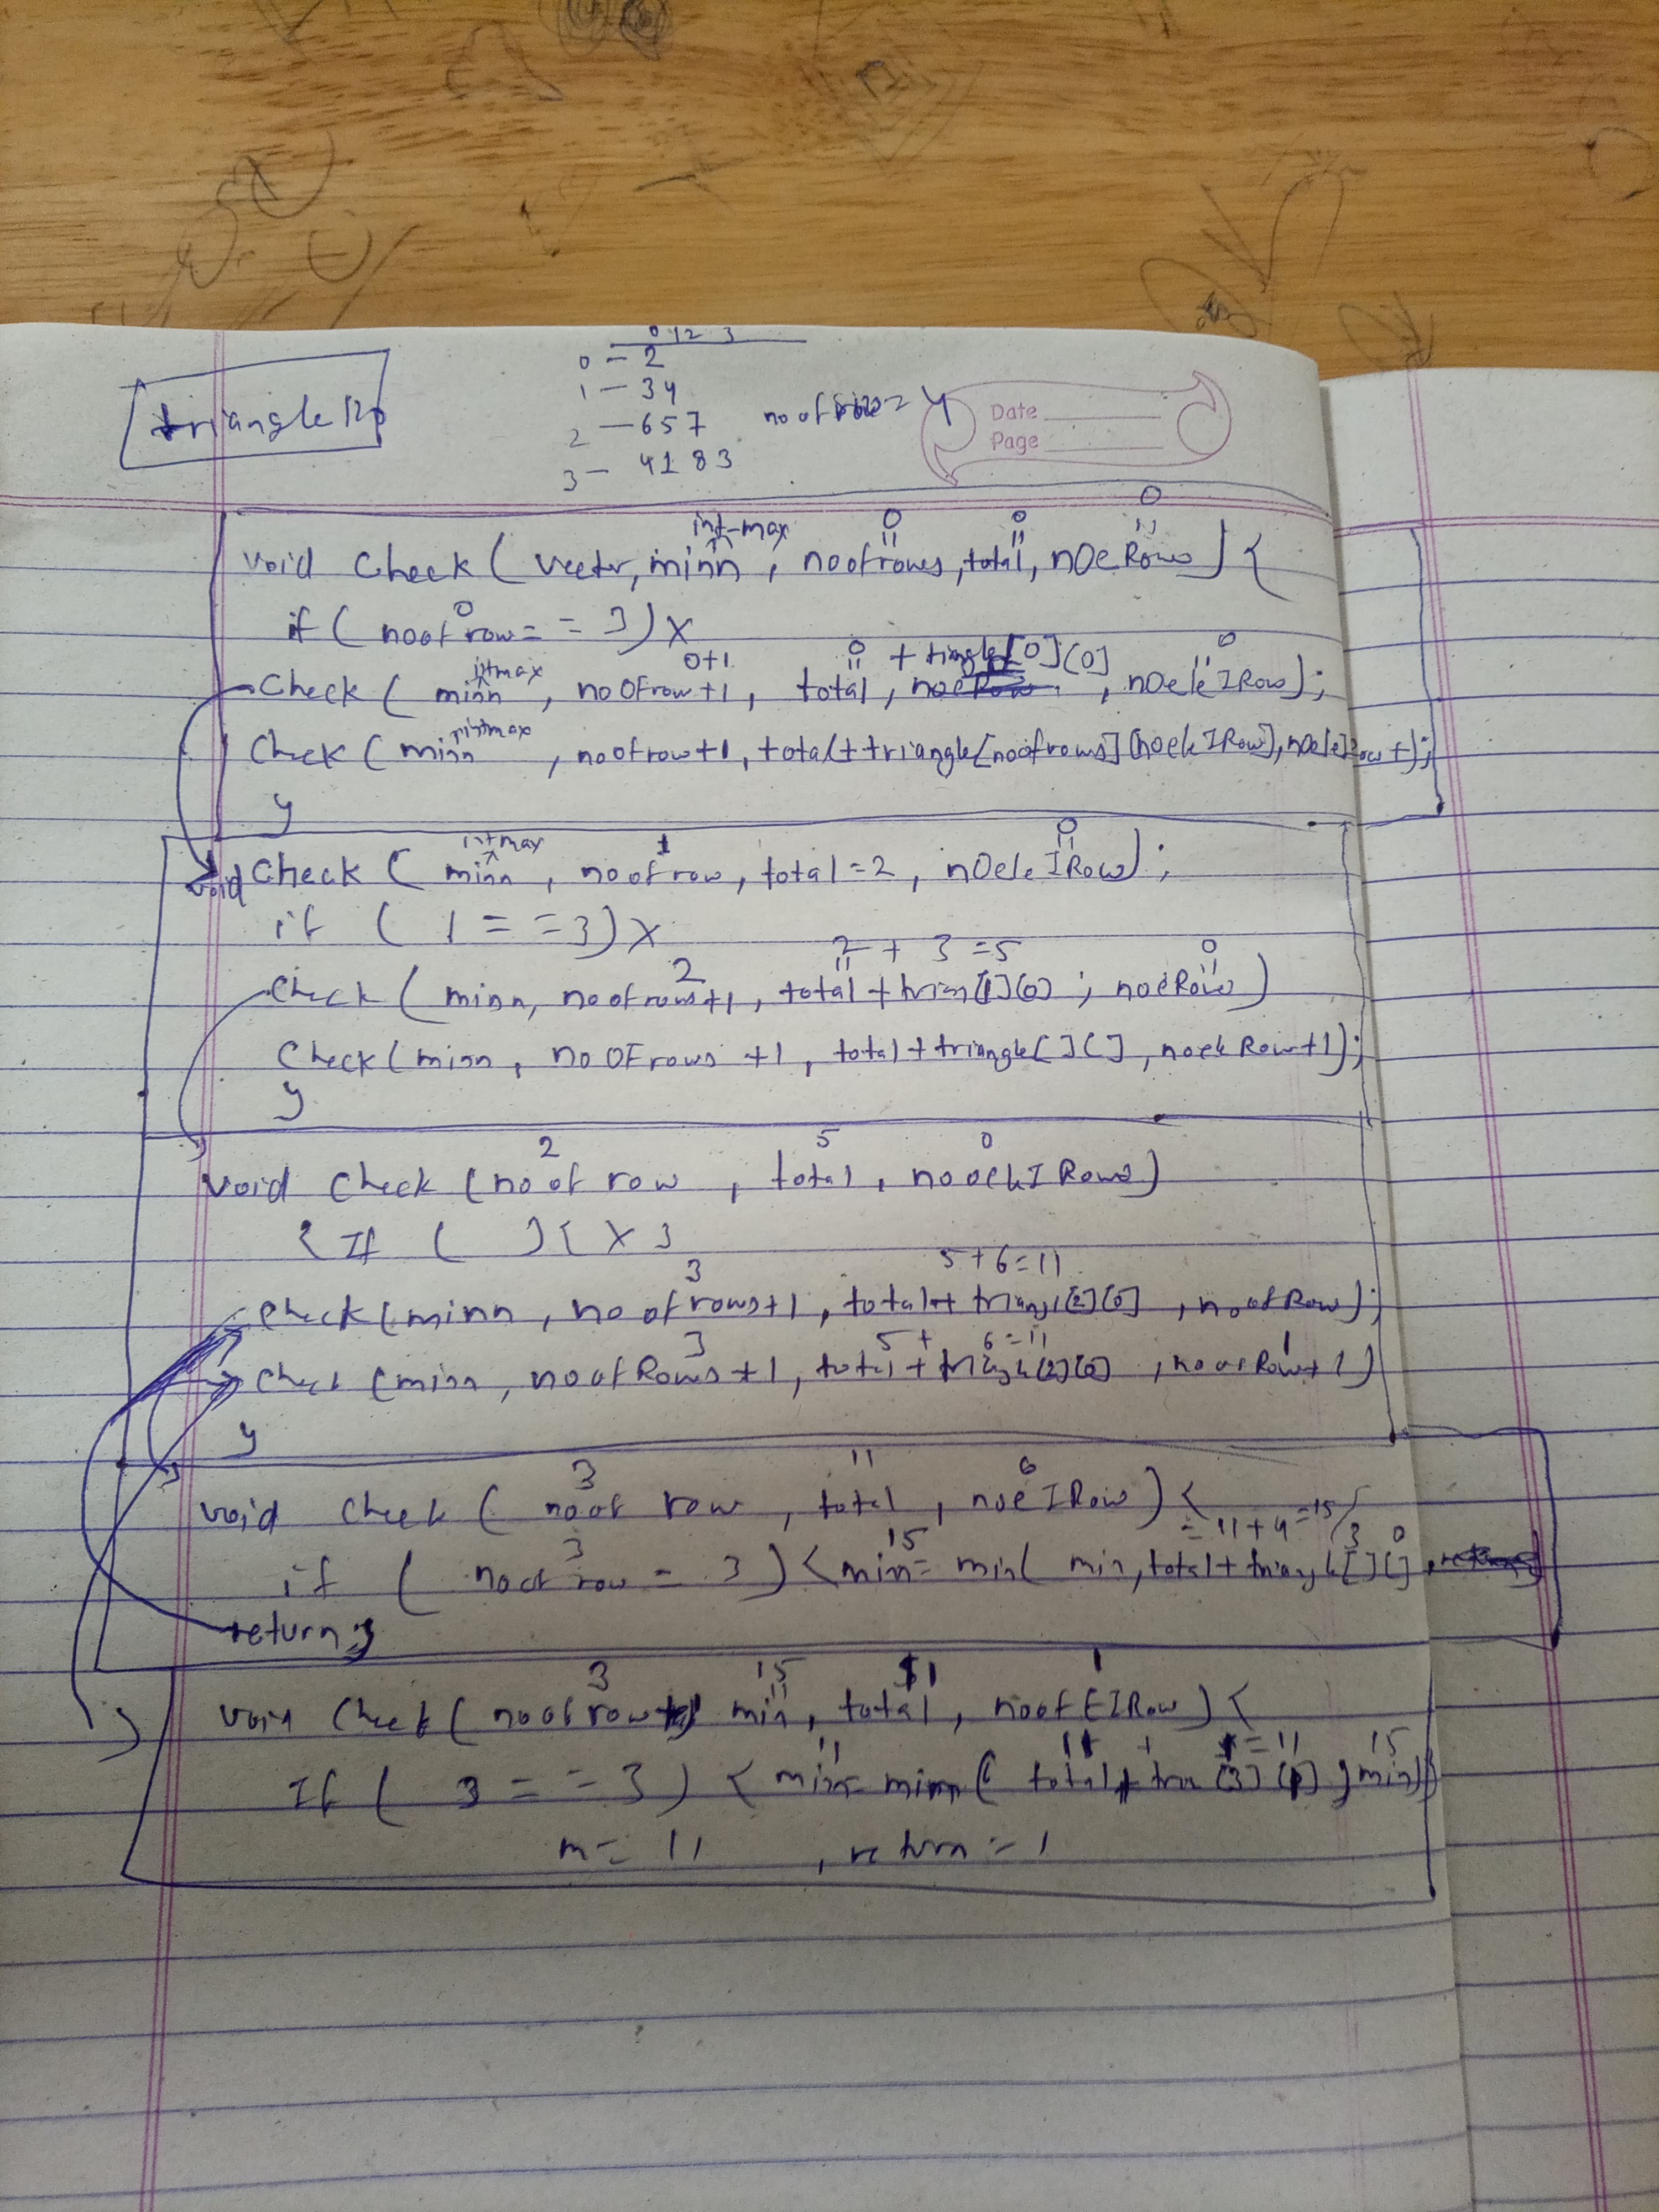 0 1 2 3
0 - 2
1 - 34
triangle 120
2 - 657
no of row = 4
3 - 4183
Date
Page
0
int-max 0 0 11
11 11
void check ( vector, minn , noofrows, total, nOeRows ) {
0
if ( noofrow = = 3 ) X
intmax 0+1 0 + tringle [0] [0] 0
check ( minn , noOfrow+1 , total , , nOeleIRow ) ;
intmax
check ( minn , noofrow+1 , total + triangle[noofrows] [noeleIRow], nOeleIRow + ) ;
y
intmax 1 0
void check ( minn , noofrow , total = 2 , nOeleIRow ) ;
if ( 1 = = 3 ) X
2 2 + 3 = 5 0
check ( minn, noofrows+1 , total + trian [1] [0] ; noeRows )
check ( minn , noOFrows +1 , total + triangle [ ] [ ] , noeleRow+1 ) ;
y
2 5 0
void check ( noof row , total , nooeleIRows )
{ If ( ) { X }
3 5 + 6 = 11
check ( minn , noofrows+1 , total + triangl [2] [0] , noofRow ) ;
3 5 + 6 = 11 1
check ( minn , noofRows +1 , total + triangle [2] [0] , noofRow + 1 )
y
3 11 0
void check ( noof row , total , noeIRow ) {
3 15 = 11 + 4 = 15 3 0
if ( noof row = 3 ) { min = min ( min, total + triangle [ ] [ ] ,
return ; }
3 15 11 1
void check ( noofrow min , total , noofEIRow ) {
11 11 + = 11 15
If ( 3 = = 3 ) { min = minn ( total + tria [3] [1] , min ) )
m = 11 , return - 1